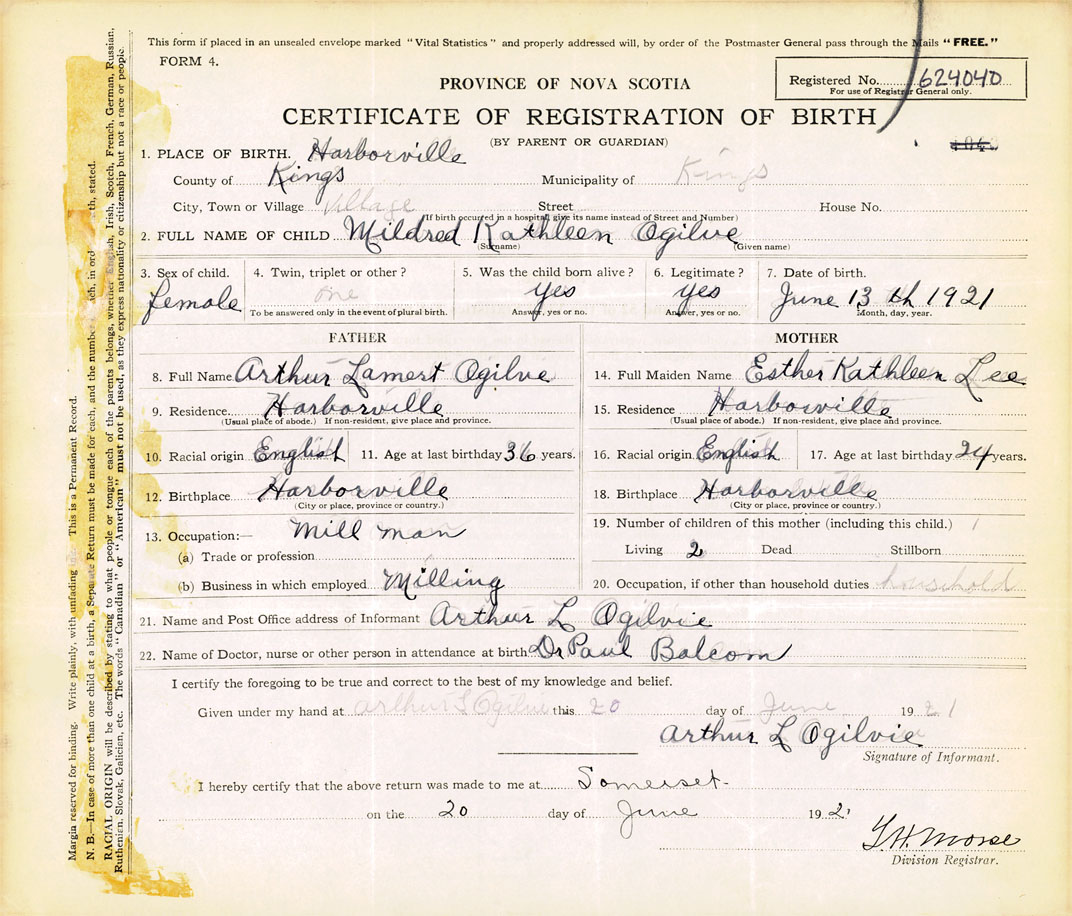 This form if placed in an unsealed envelope marked "Vital Statistics" and properly addressed will, by order of the Postmaster General pass through the Mails "FREE."
FORM 4.
Registered No. 624040
For use of Registrar General only.
PROVINCE OF NOVA SCOTIA
CERTIFICATE OF REGISTRATION OF BIRTH
(BY PARENT OR GUARDIAN)
1. PLACE OF BIRTH. Harborville
County of Kings Municipality of Kings
City, Town or Village Village Street House No.
(If birth occurred in a hospital, give its name instead of Street and Number)
2. FULL NAME OF CHILD Mildred Kathleen Ogilvie
(Surname) (Given name)
3. Sex of child. 4. Twin, triplet or other? 5. Was the child born alive? 6. Legitimate? 7. Date of birth.
female one yes yes June 13th 1921
To be answered only in the event of plural birth. Answer, yes or no. Answer, yes or no. Month, day, year.
FATHER MOTHER
8. Full Name Arthur Lamert Ogilvie 14. Full Maiden Name Esther Kathleen Lee
9. Residence Harborville 15. Residence Harborville
(Usual place of abode.) If non-resident, give place and province. (Usual place of abode.) If non-resident, give place and province.
10. Racial origin English 11. Age at last birthday 36 years. 16. Racial origin English 17. Age at last birthday 24 years.
12. Birthplace Harborville 18. Birthplace Harborville
(City or place, province or country.) (City or place, province or country.)
13. Occupation:— Mill man 19. Number of children of this mother (including this child.)
(a) Trade or profession Living 2 Dead Stillborn
(b) Business in which employed Milling 20. Occupation, if other than household duties household
21. Name and Post Office address of Informant Arthur L Ogilvie
22. Name of Doctor, nurse or other person in attendance at birth. Dr Paul Balcom
I certify the foregoing to be true and correct to the best of my knowledge and belief.
Given under my hand at Arthur L Ogilvie this 20 day of June 1921
Arthur L Ogilvie
Signature of Informant.
I hereby certify that the above return was made to me at Somerset
on the 20 day of June 192
T.H. Morse
Division Registrar.
Margin reserved for binding. Write plainly, with unfading This is a Permanent Record.
N. B.—In case of more than one child at a birth, a Separate Return must be made for each, and the number each, in ord th, stated.
RACIAL ORIGIN will be described by stating to what people or tongue each of the parents belongs, whether English, Irish, Scotch, French, German, Russian,
Ruthenian, Slovak, Galician, etc. The words "Canadian" or "American" must not be used, as they express nationality or citizenship but not a race or people.